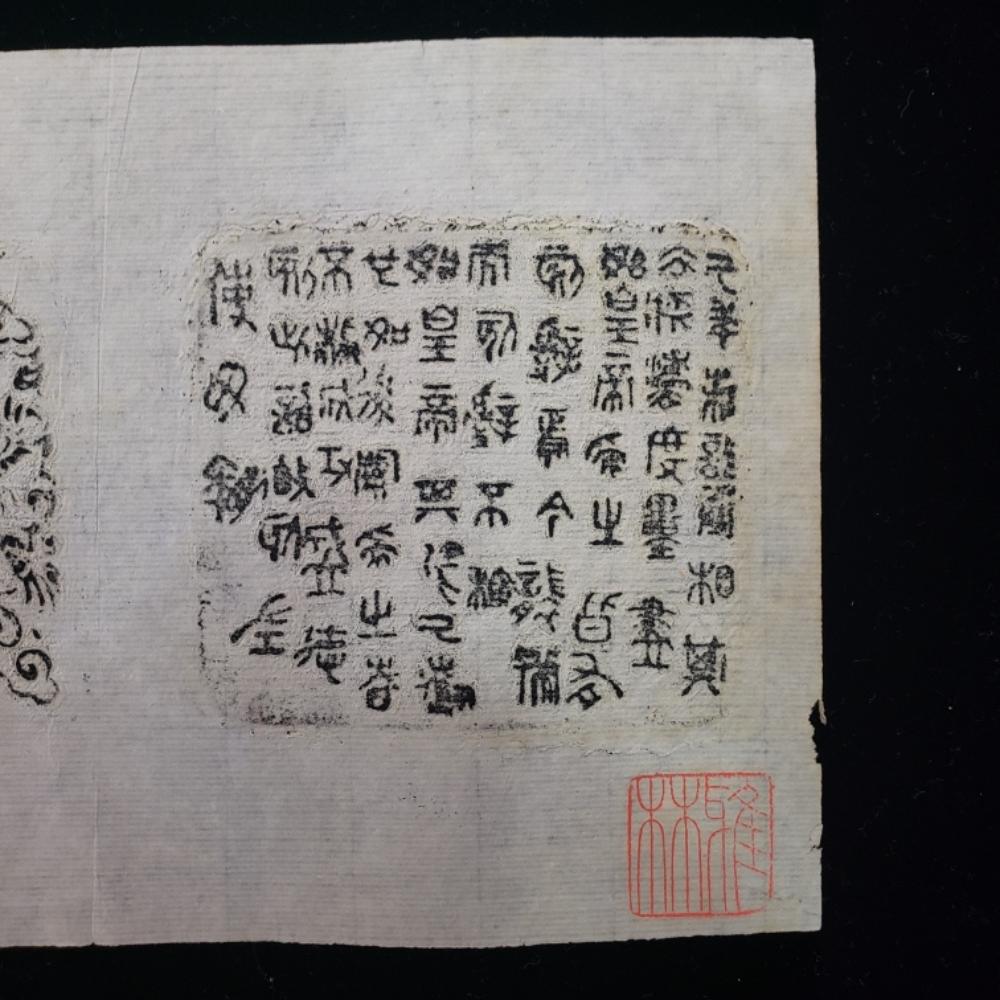 元年制詔丞相斯
去疾法度量盡
始皇帝為之皆有
刻辭焉今襲號
而刻辭不稱
始皇帝其於久遠
也如後嗣為之者
不稱成功盛德
刻此詔故刻左
使毋疑